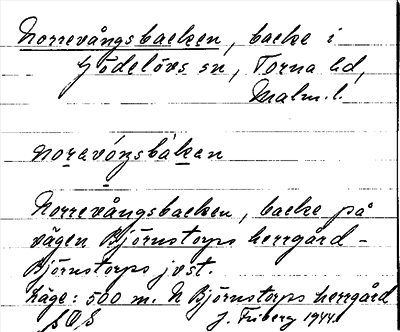 Norrevångsbacken, backe i
Gödelövs sn, Torna hd,
Malm. l.
noravóŋsbàkan
Norrevångsbacken, backe på
vägen Björnstorps herrgård –
Björnstorps jvst.
Läge: 500 m. N Björnstorps herrgård
J. Friberg 1944.